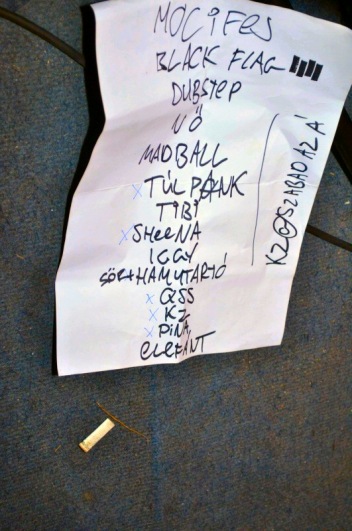 MOCIFES
BLACK FLAG
DUBSTEP
NŐ
MADBALL
x TÚL PANK
TIBI
x SHEENA
IGGY
SÖR+HAMUTARTÓ
x QSS
x KZ
x PINA
ELEFÁNT
KZ@SZABAD AZ Á